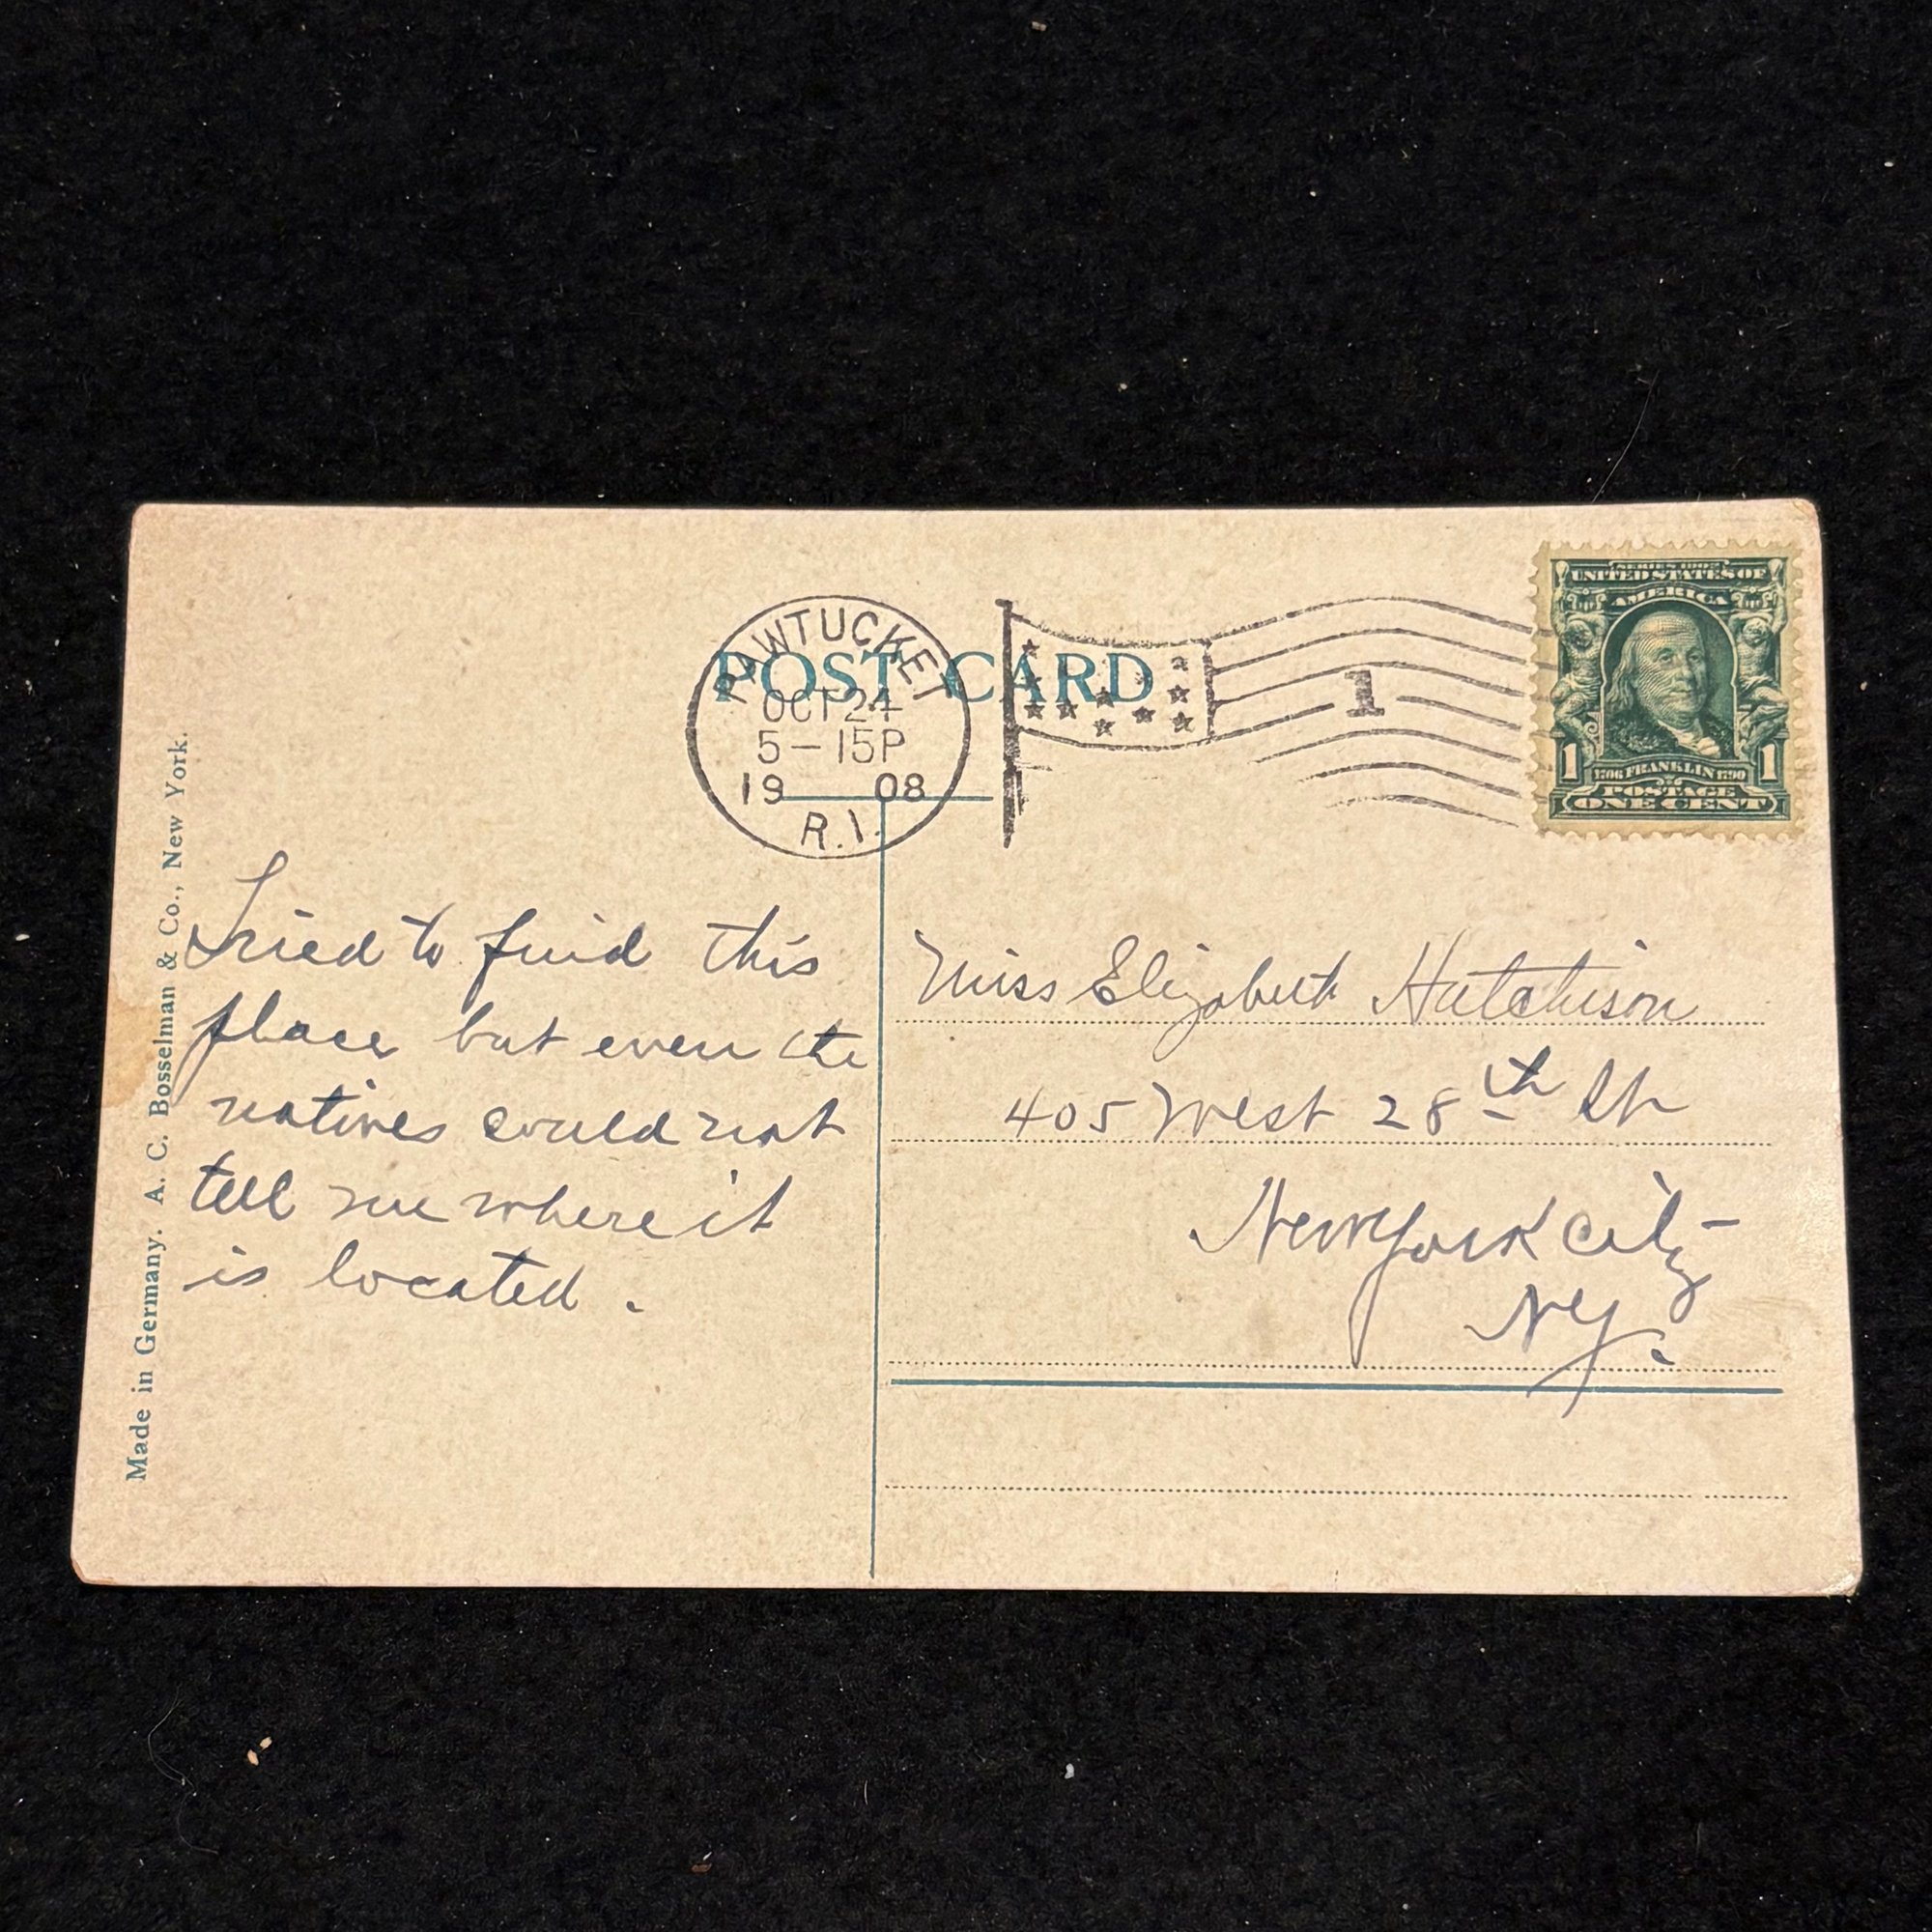 POST CARD
PAWTUCKET
OCT 24
5-15P
1908
R.I.
1
SERIES 1902
UNITED STATES OF
AMERICA
1 1
1706 FRANKLIN 1790
POSTAGE
ONE CENT
Made in Germany. A. C. Bosselman & Co., New York.
Tried to find this
place but even the
natives could not
tell me where it
is located.
Miss Elizabeth Hutchison
405 West 28th St
New York City
NY.